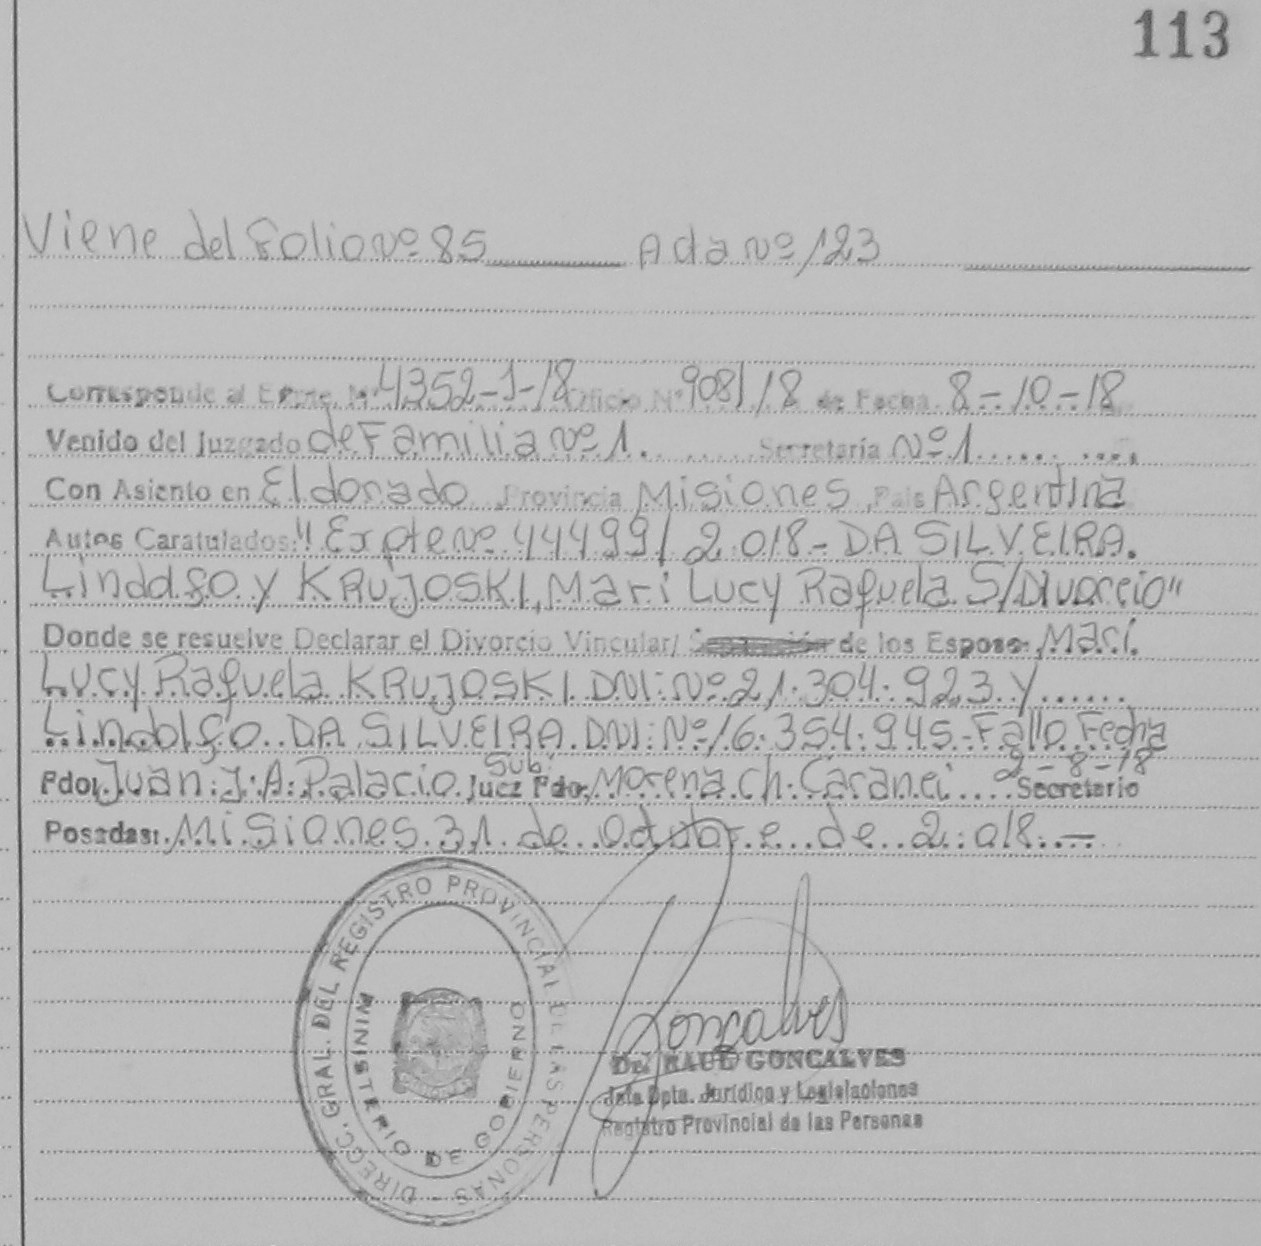 113
Viene del Folio Nº 85 Acta Nº 123
Corresponde al Expte. Nº 4352-J-18 Oficio Nº 908/18 de Fecha 8-10-18
Venido del Juzgado de Familia Nº 1. Secretaría Nº 1
Con Asiento en Eldorado Provincia Misiones País Argentina
Autos Caratulados: "Expte Nº 44499/2.018- DA SILVEIRA.
Lindolfo y KRUJOSKI, Mari Lucy Rafuela S/Divorcio"
Donde se resuelve Declarar el Divorcio Vincular/ de los Esposos Mari
Lucy Rafuela KRUJOSKI DNI: Nº 21.304.923 y
Lindolfo DA SILVEIRA. DNI: Nº 16.354.945- Fallo Fecha
2-8-18
Sub.
Fdo. Juan: J: A: Palacio. Juez Fdo. Morena Ch. Caranci Secretario
Posadas: Misiones 31 de Octubre de 2.018.-
DIRECC. GRAL. DEL REGISTRO PROVINCIAL DE LAS PERSONAS -
MINISTERIO DE GOBIERNO
Goncalves
Dr. RAUL GONCALVES
Jefe Dpto. Jurídico y Legislaciones
Registro Provincial de las Personas